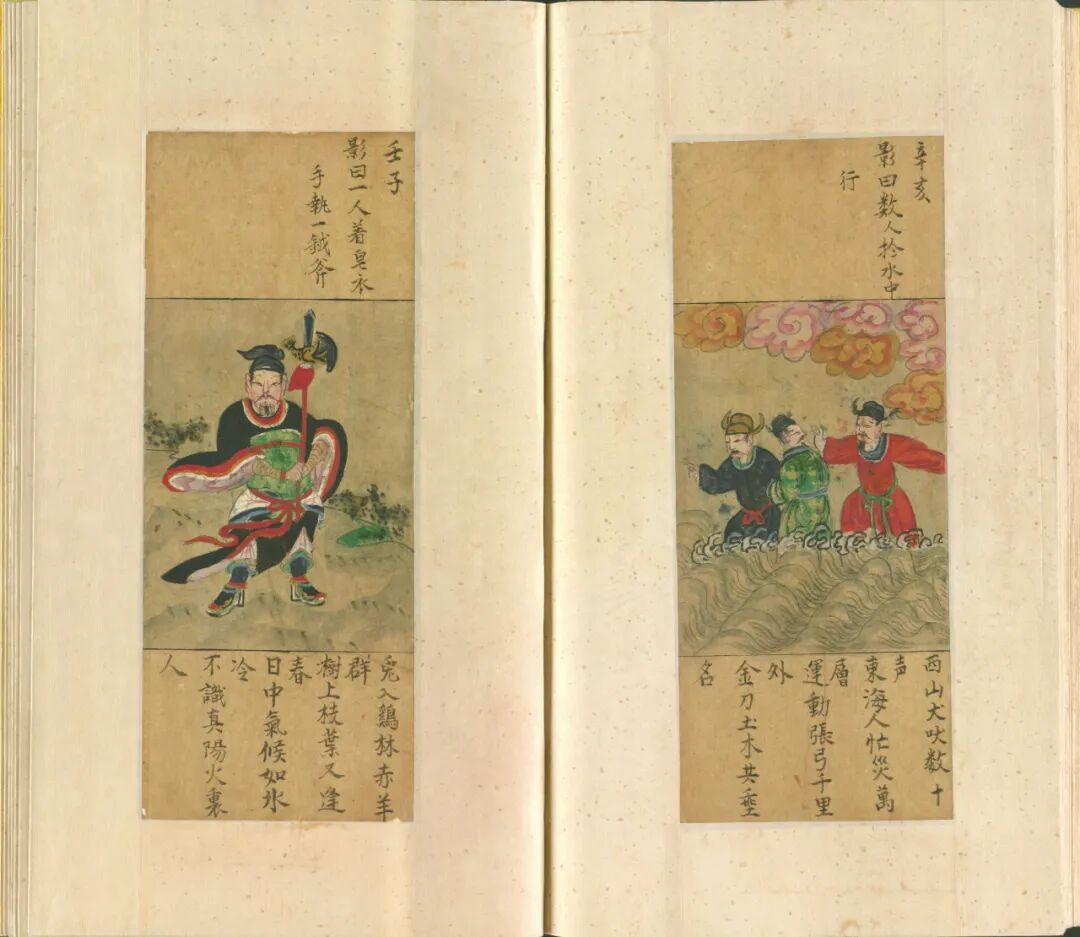 辛亥
影曰数人扵水中
行
西山犬吠数十
声
東海人忙災萬
層
運動張弓千里
外
金刀土木共垂
名
壬子
影曰一人着皂衣
手執一鉞斧
兎入鷄林赤羊
群
樹上枝葉又逢
春
日中氣候如氷
冷
不識真陽火裏
人